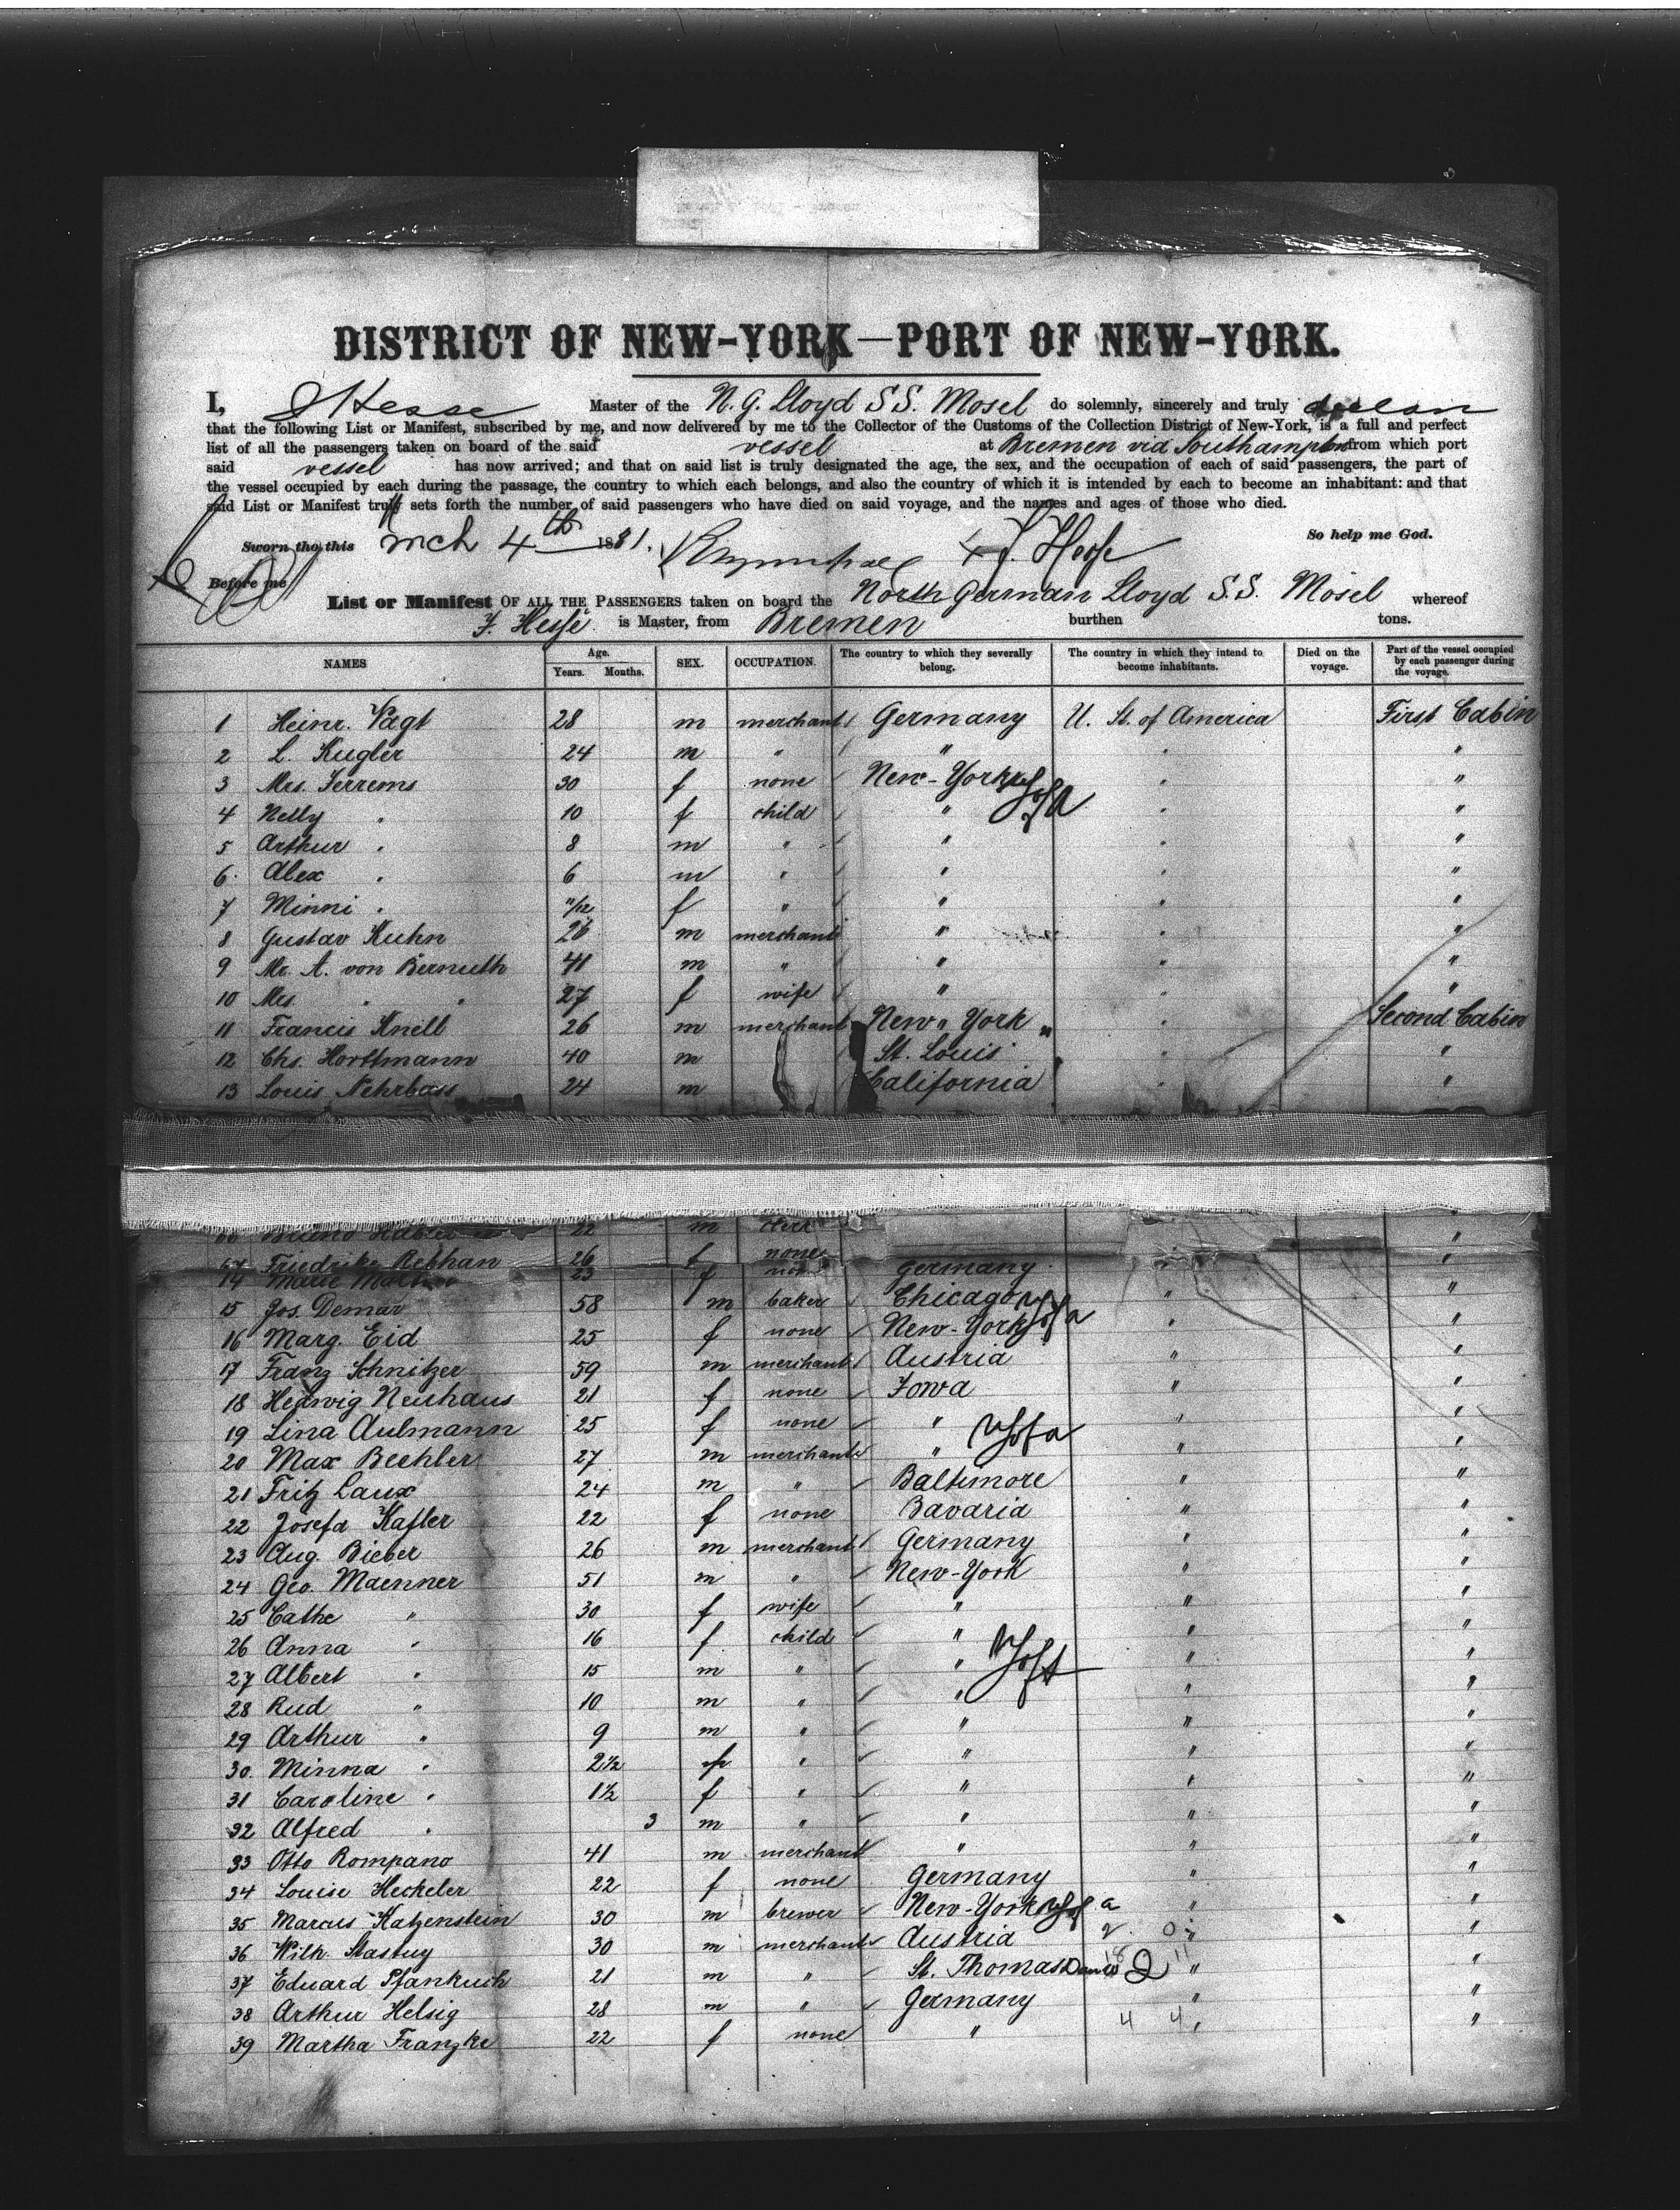 DISTRICT OF NEW-YORK—PORT OF NEW-YORK.
I, Hesse Master of the N. G. Lloyd S S. Mosel do solemnly, sincerely and truly
that the following List or Manifest, subscribed by me, and now delivered by me to the Collector of the Customs of the Collection District of New-York, is a full and perfect
list of all the passengers taken on board of the said vessel at Bremen via Southampton from which port
said vessel has now arrived; and that on said list is truly designated the age, the sex, and the occupation of each of said passengers, the part of
the vessel occupied by each during the passage, the country to which each belongs, and also the country of which it is intended by each to become an inhabitant: and that
said List or Manifest truly sets forth the number of said passengers who have died on said voyage, and the names and ages of those who died.
Sworn tho, this mch 4th 1881. F. Hesse So help me God.
Before me
List or Manifest OF ALL THE PASSENGERS taken on board the North German Lloyd S. S. Mosel whereof
F. Hesse is Master, from Bremen burthen tons.
NAMES Age. Years. Months. SEX. OCCUPATION. The country to which they severally belong. The country in which they intend to become inhabitants. Died on the voyage. Part of the vessel occupied by each passenger during the voyage.
1 Heinr. Vagt 28 m merchant Germany U. St. of America First Cabin
2 L. Kugler 24 m " " " "
3 Mrs. Jerrems 30 f none New-York " "
4 Nelly " 10 f child " " "
5 Arthur " 8 m " " " "
6 Alex " 6 m " " " "
7 Minni " 11/12 f " " " "
8 Gustav Kuhn 26 m merchant " " "
9 Mr. A. von Bernuth 41 m " " " "
10 Mrs. " " 27 f wife " " "
11 Francis Knell 26 m merchant New York " Second Cabin
12 Chs. Horttmann 40 m St. Louis " "
13 Louis Nehrbass 24 m California " "
22 m clerk "
67 Friedrike Rebhan 26 f none "
14 Marie 23 f Germany " "
15 Jos. Demar 58 m baker Chicago " "
16 Marg. Eid 25 f none New-York " "
17 Franz Schnitzer 59 m merchant Austria " "
18 Hedwig Neuhaus 21 f none Iowa " "
19 Lina Aulmann 25 f none " " "
20 Max Bechler 27 m merchant " " "
21 Fritz Laux 24 m " Baltimore " "
22 Josefa Kafler 22 f none Bavaria " "
23 Aug. Bieber 26 m merchant Germany " "
24 Geo. Maenner 51 m " New-York " "
25 Cathe " 30 f wife " " "
26 Anna " 16 f child " " "
27 Albert " 15 m " " " "
28 Rud " 10 m " " " "
29 Arthur " 9 m " " " "
30. Minna " 2 1/2 f " " " "
31 Caroline " 1 1/2 f " " " "
32 Alfred " 3 m " " " "
33 Otto Rompano 41 m merchant " " "
34 Louise Heckeler 22 f none Germany " "
35 Marcus Katzenstein 30 m brewer New-York " "
36 Wilh. Stastny 30 m merchant Austria " "
37 Eduard Pfankuch 21 m " St. Thomas " "
38 Arthur Helsig 28 m " Germany " "
39 Martha Franzke 22 f none " 4 4 " "